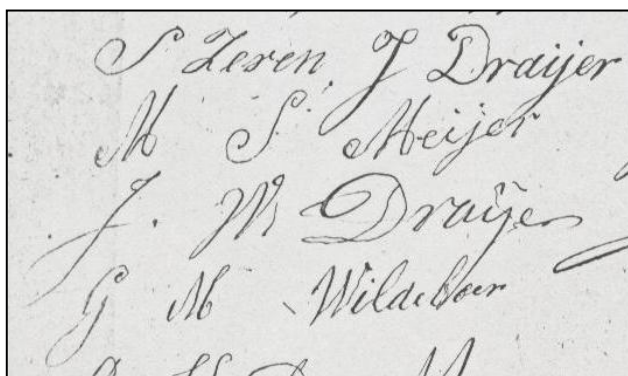 S Zeren, J Draijer
M S. Meijer
J. W. Draijer
G M Wildeboer